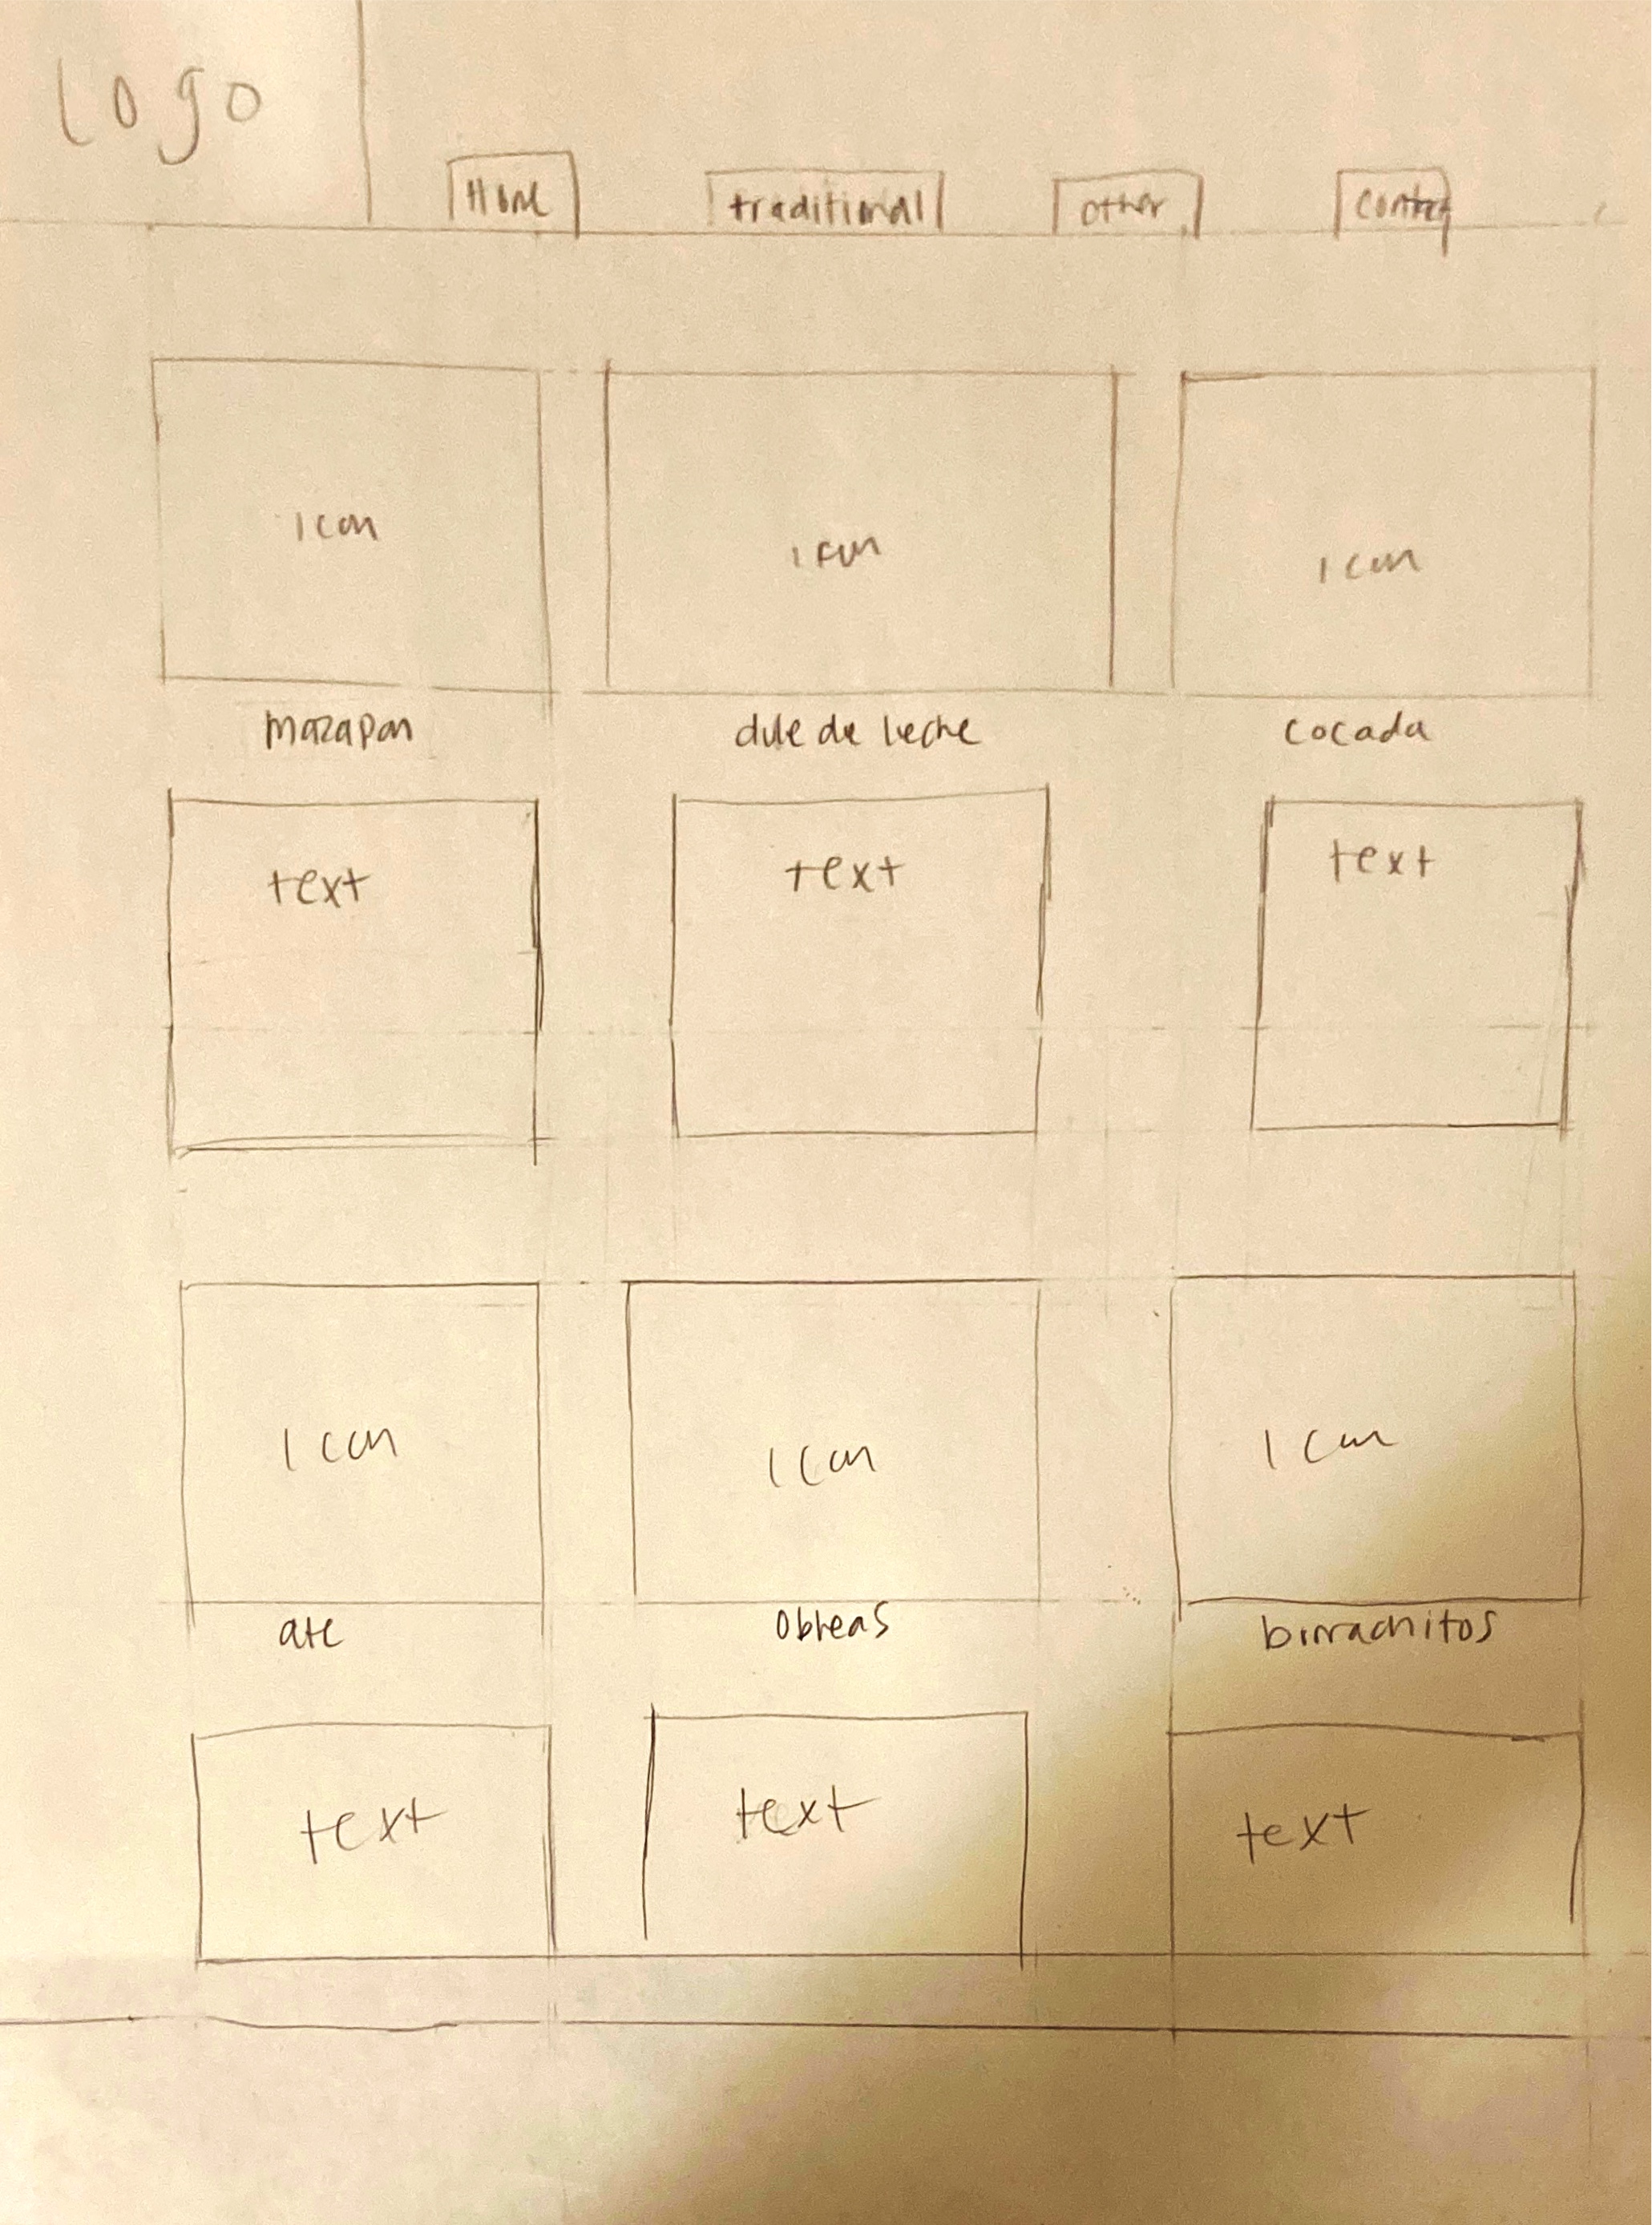 logo
Home traditional other
icon icon icon
mazapan dulce de leche cocada
text text text
icon icon icon
ate obleas borrachitos
text text text